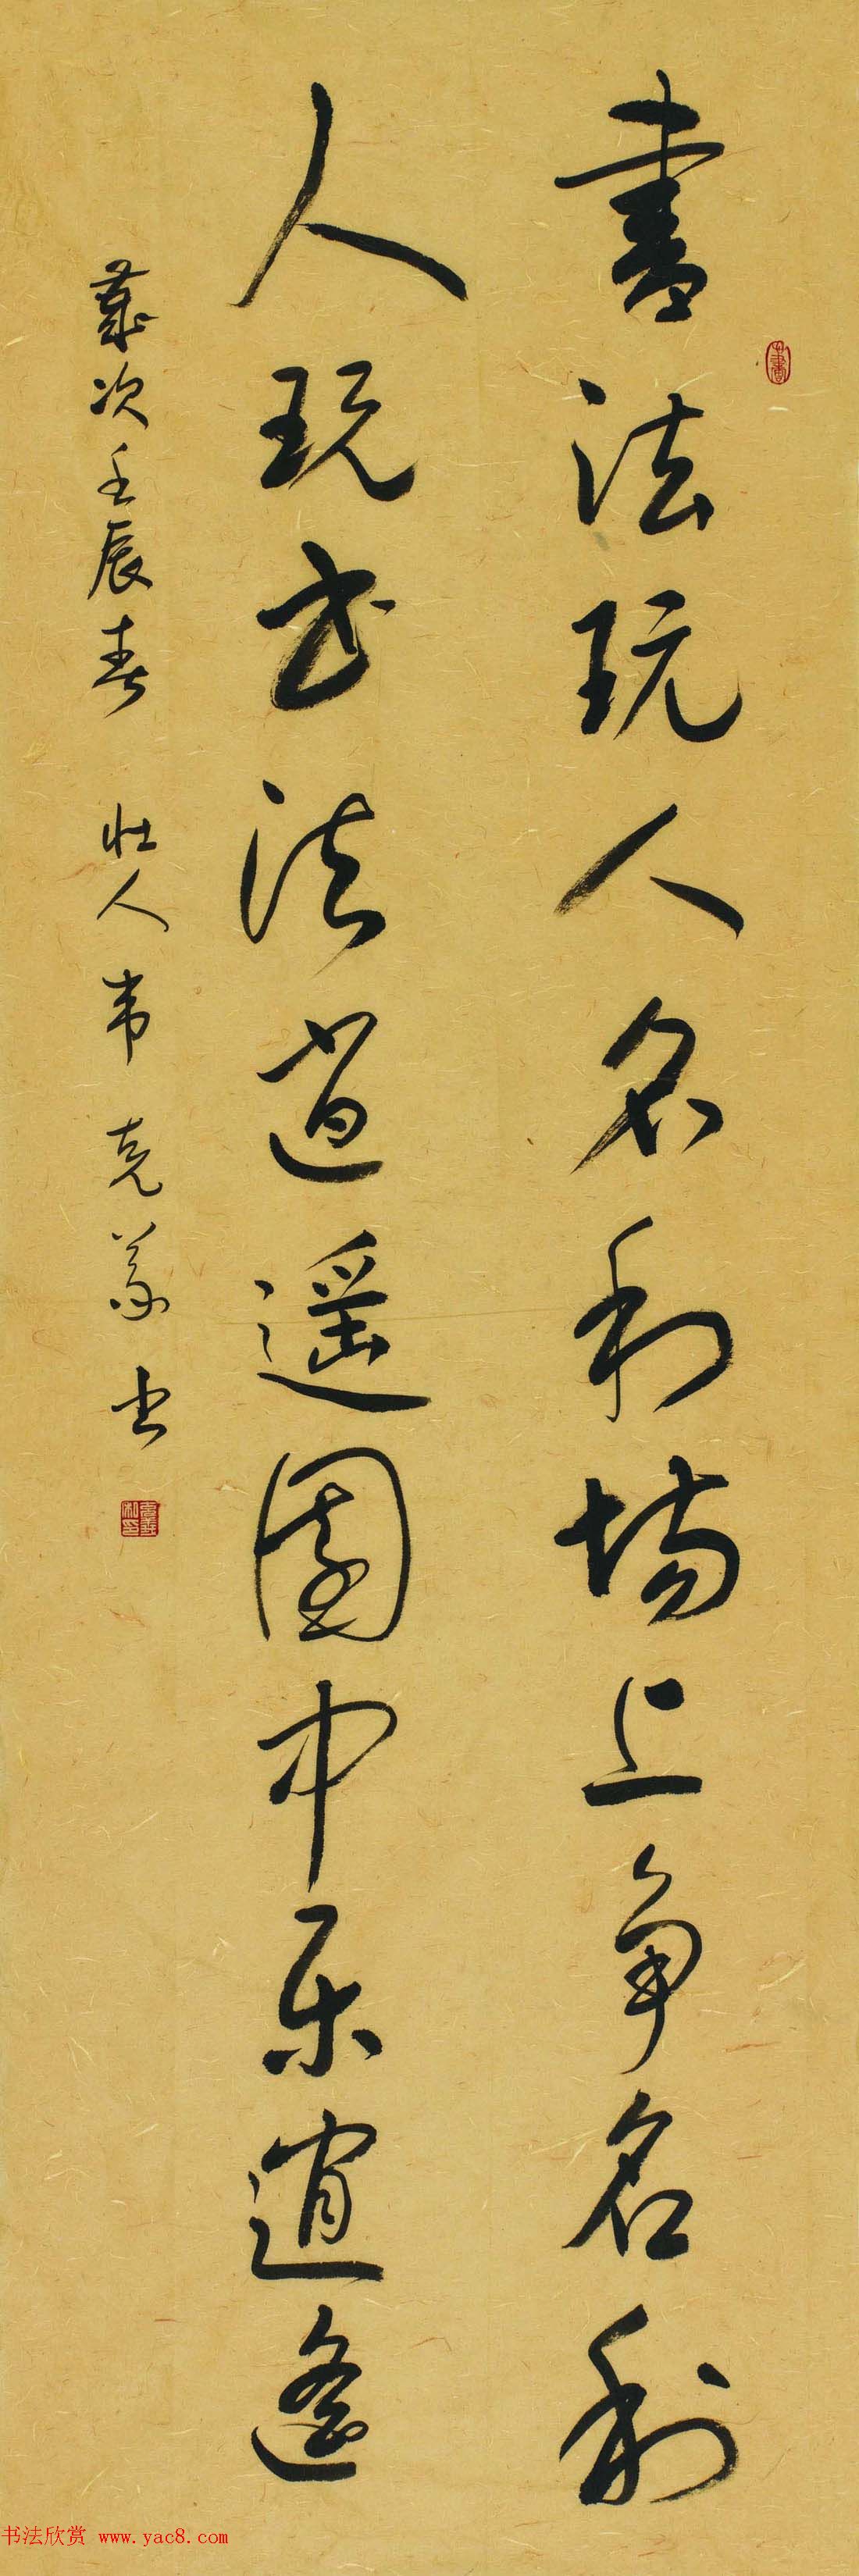 書法玩人名利场上争名利
人玩书法逍遥園中乐逍遥
歲次壬辰春 壮人韦克义书
书法欣赏 www.yac8.com